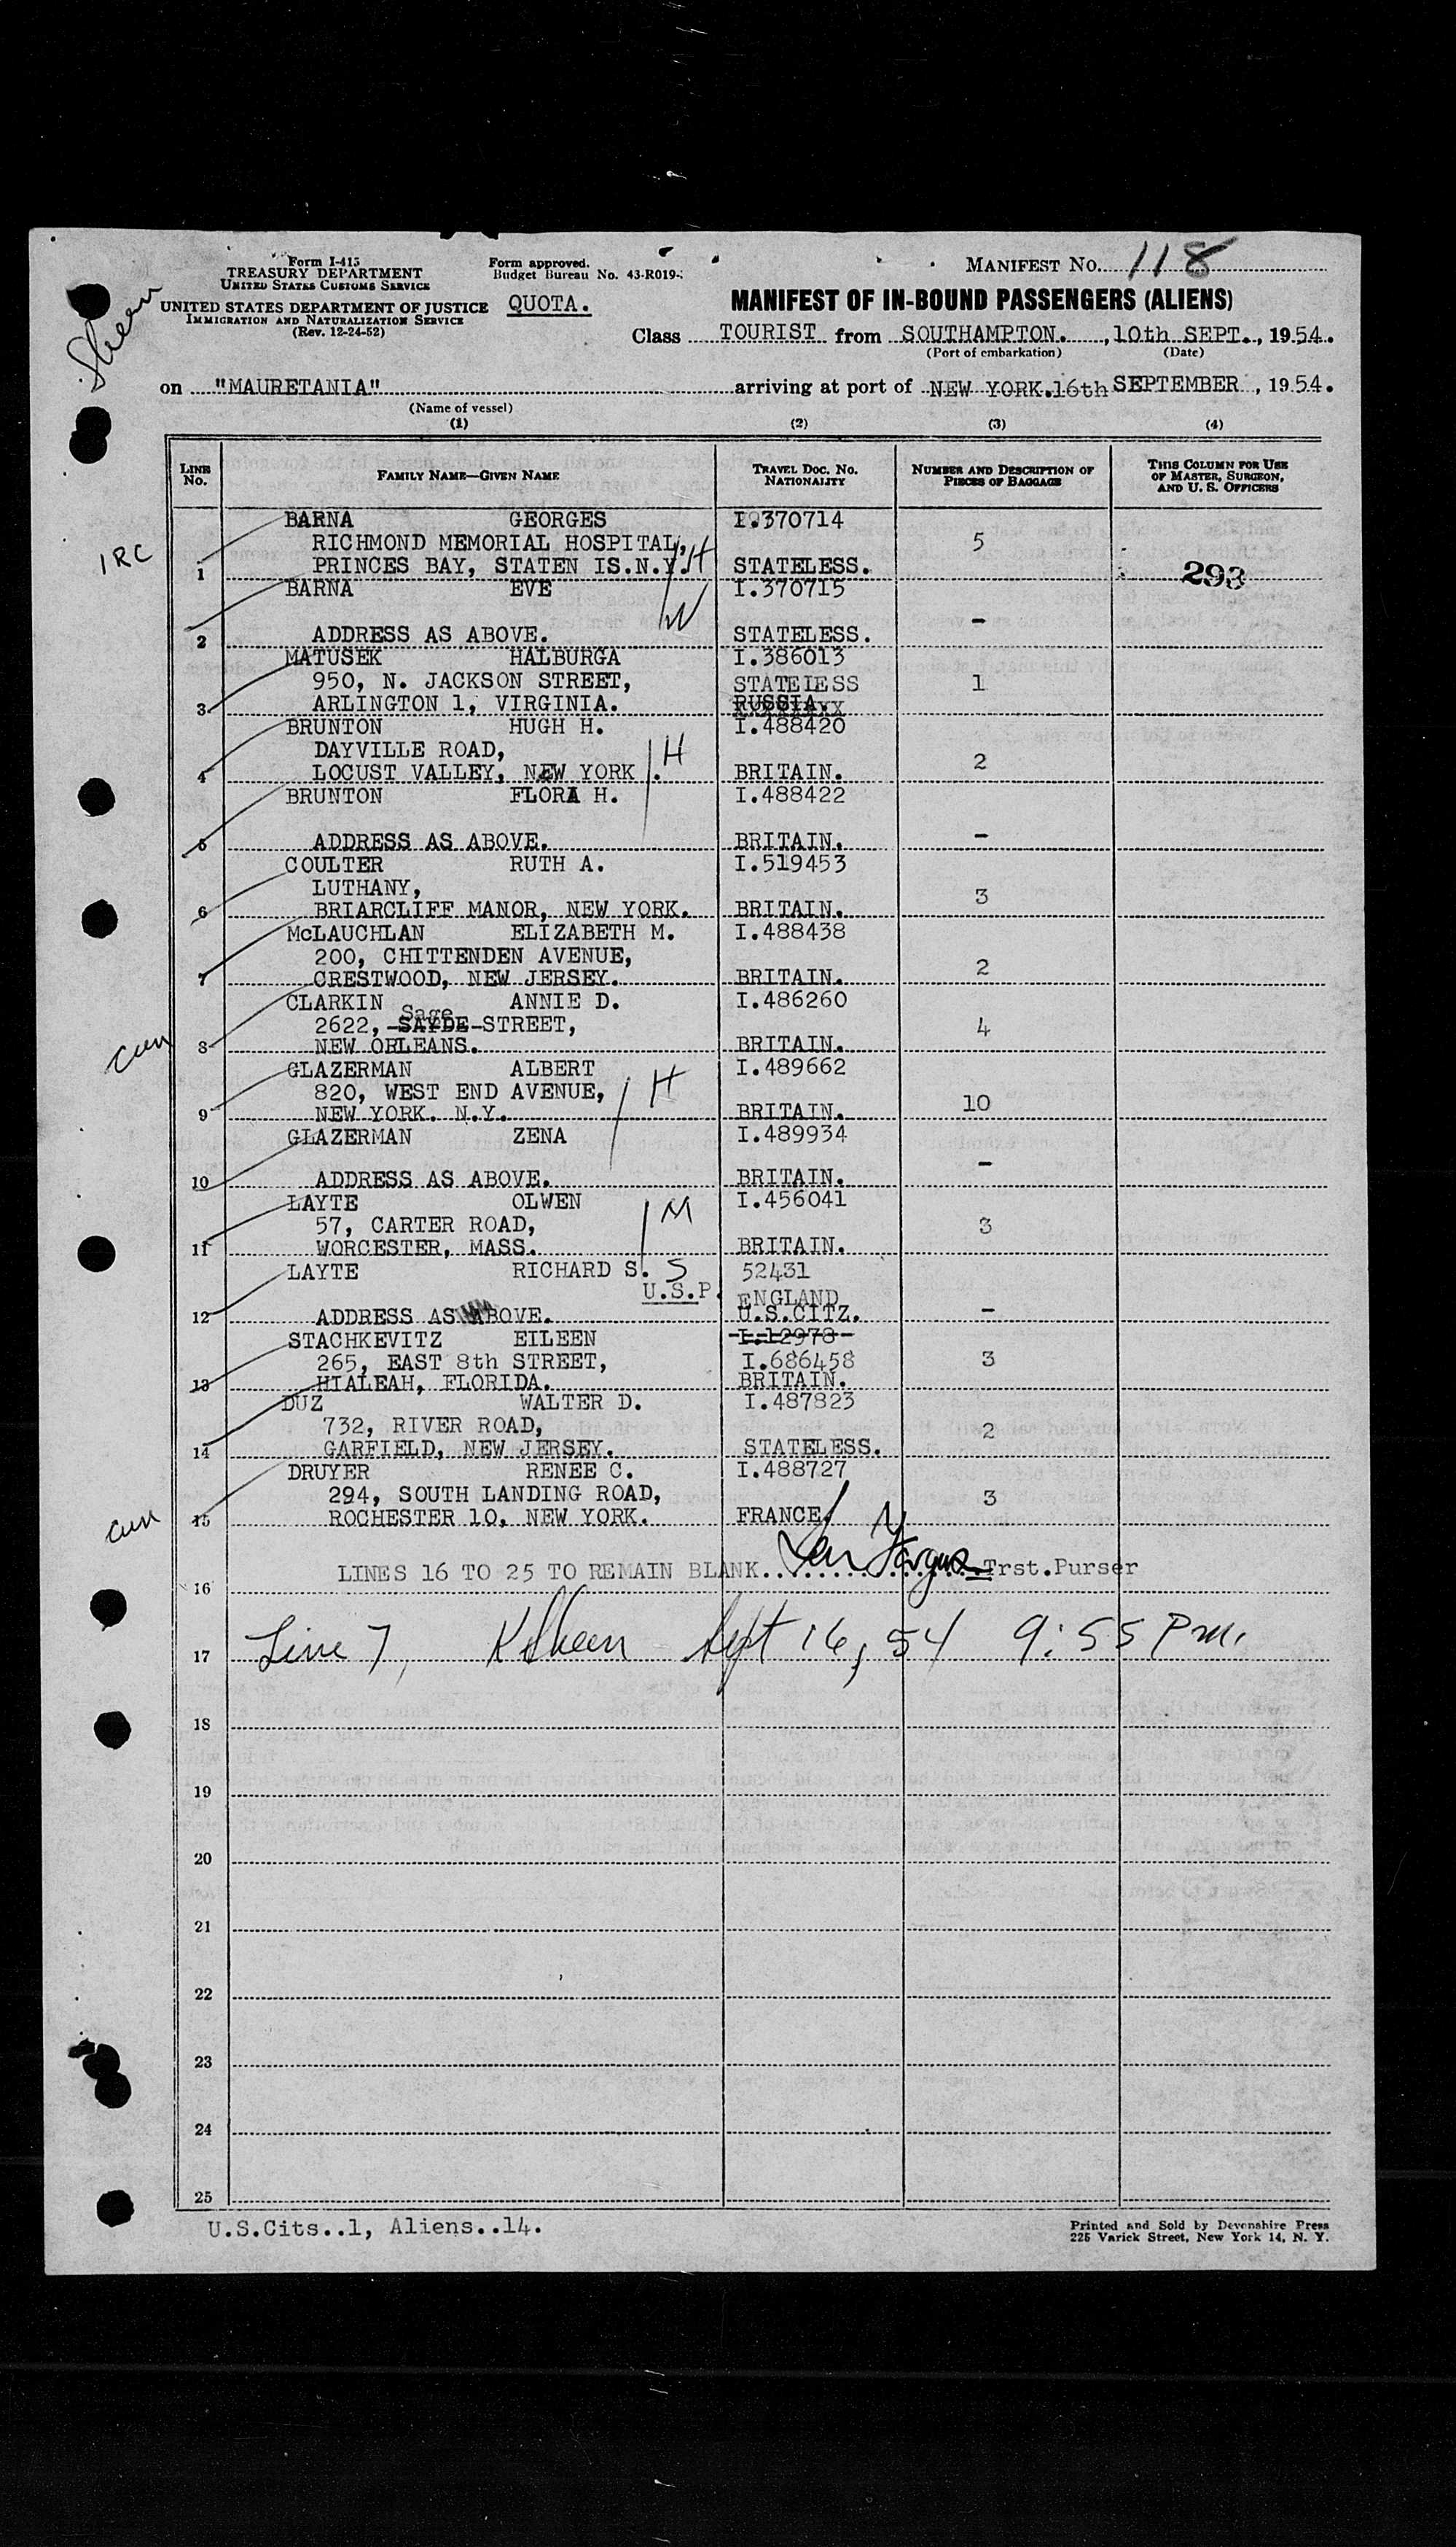 Form I-415
TREASURY DEPARTMENT
UNITED STATES CUSTOMS SERVICE
UNITED STATES DEPARTMENT OF JUSTICE
IMMIGRATION AND NATURALIZATION SERVICE
(Rev. 12-24-52)
Form approved.
Budget Bureau No. 43-R019-
QUOTA.
MANIFEST NO. 118
MANIFEST OF IN-BOUND PASSENGERS (ALIENS)
Class TOURIST from SOUTHAMPTON. , 10th SEPT. , 1954.
(Port of embarkation) (Date)
Sheen
on "MAURETANIA" arriving at port of NEW YORK. 16th SEPTEMBER , 1954.
(Name of vessel)
(1) (2) (3) (4)
LINE No. FAMILY NAME—GIVEN NAME TRAVEL DOC. NO. NATIONALITY NUMBER AND DESCRIPTION OF PIECES OF BAGGAGE THIS COLUMN FOR USE OF MASTER, SURGEON, AND U. S. OFFICERS
BARNA GEORGES I.370714
RICHMOND MEMORIAL HOSPITAL, 5
IRC
1 PRINCES BAY, STATEN IS.N.Y. H STATELESS. 293
BARNA EVE I.370715
W
2 ADDRESS AS ABOVE. STATELESS. -
MATUSEK HALBURGA I.386013
950, N. JACKSON STREET, STATELESS 1
3 ARLINGTON 1, VIRGINIA. RUSSIA.
BRUNTON HUGH H. I.488420
DAYVILLE ROAD, H
4 LOCUST VALLEY, NEW YORK. BRITAIN. 2
BRUNTON FLORA H. I.488422
5 ADDRESS AS ABOVE. BRITAIN. -
COULTER RUTH A. I.519453
LUTHANY,
6 BRIARCLIFF MANOR, NEW YORK. BRITAIN. 3
McLAUCHLAN ELIZABETH M. I.488438
200, CHITTENDEN AVENUE,
7 CRESTWOOD, NEW JERSEY. BRITAIN. 2
CLARKIN ANNIE D. I.486260
2622, SAYDE Sage STREET, 4
8 NEW ORLEANS. BRITAIN.
GLAZERMAN ALBERT I.489662
820, WEST END AVENUE, H
9 NEW YORK. N.Y. BRITAIN. 10
GLAZERMAN ZENA I.489934
10 ADDRESS AS ABOVE. BRITAIN. -
LAYTE OLWEN I.456041
57, CARTER ROAD, M 3
11 WORCESTER, MASS. BRITAIN.
LAYTE RICHARD S. S 52431
U.S.P. ENGLAND
12 ADDRESS AS ABOVE. U.S.CITZ. -
STACHKEVITZ EILEEN I.12978
265, EAST 8th STREET, I.686458 3
13 HIALEAH, FLORIDA. BRITAIN.
DUZ WALTER D. I.487823
732, RIVER ROAD, 2
14 GARFIELD, NEW JERSEY. STATELESS.
DRUYER RENEE C. I.488727
294, SOUTH LANDING ROAD, 3
15 ROCHESTER 10, NEW YORK. FRANCE.
LINES 16 TO 25 TO REMAIN BLANK. Trst.Purser
16
17 Line 7, K Sheen Sept 16, 54 9:55 Pm.
18
19
20
21
22
23
24
25
U.S.Cits..1, Aliens..14.
Printed and Sold by Devonshire Press
225 Varick Street, New York 14, N. Y.